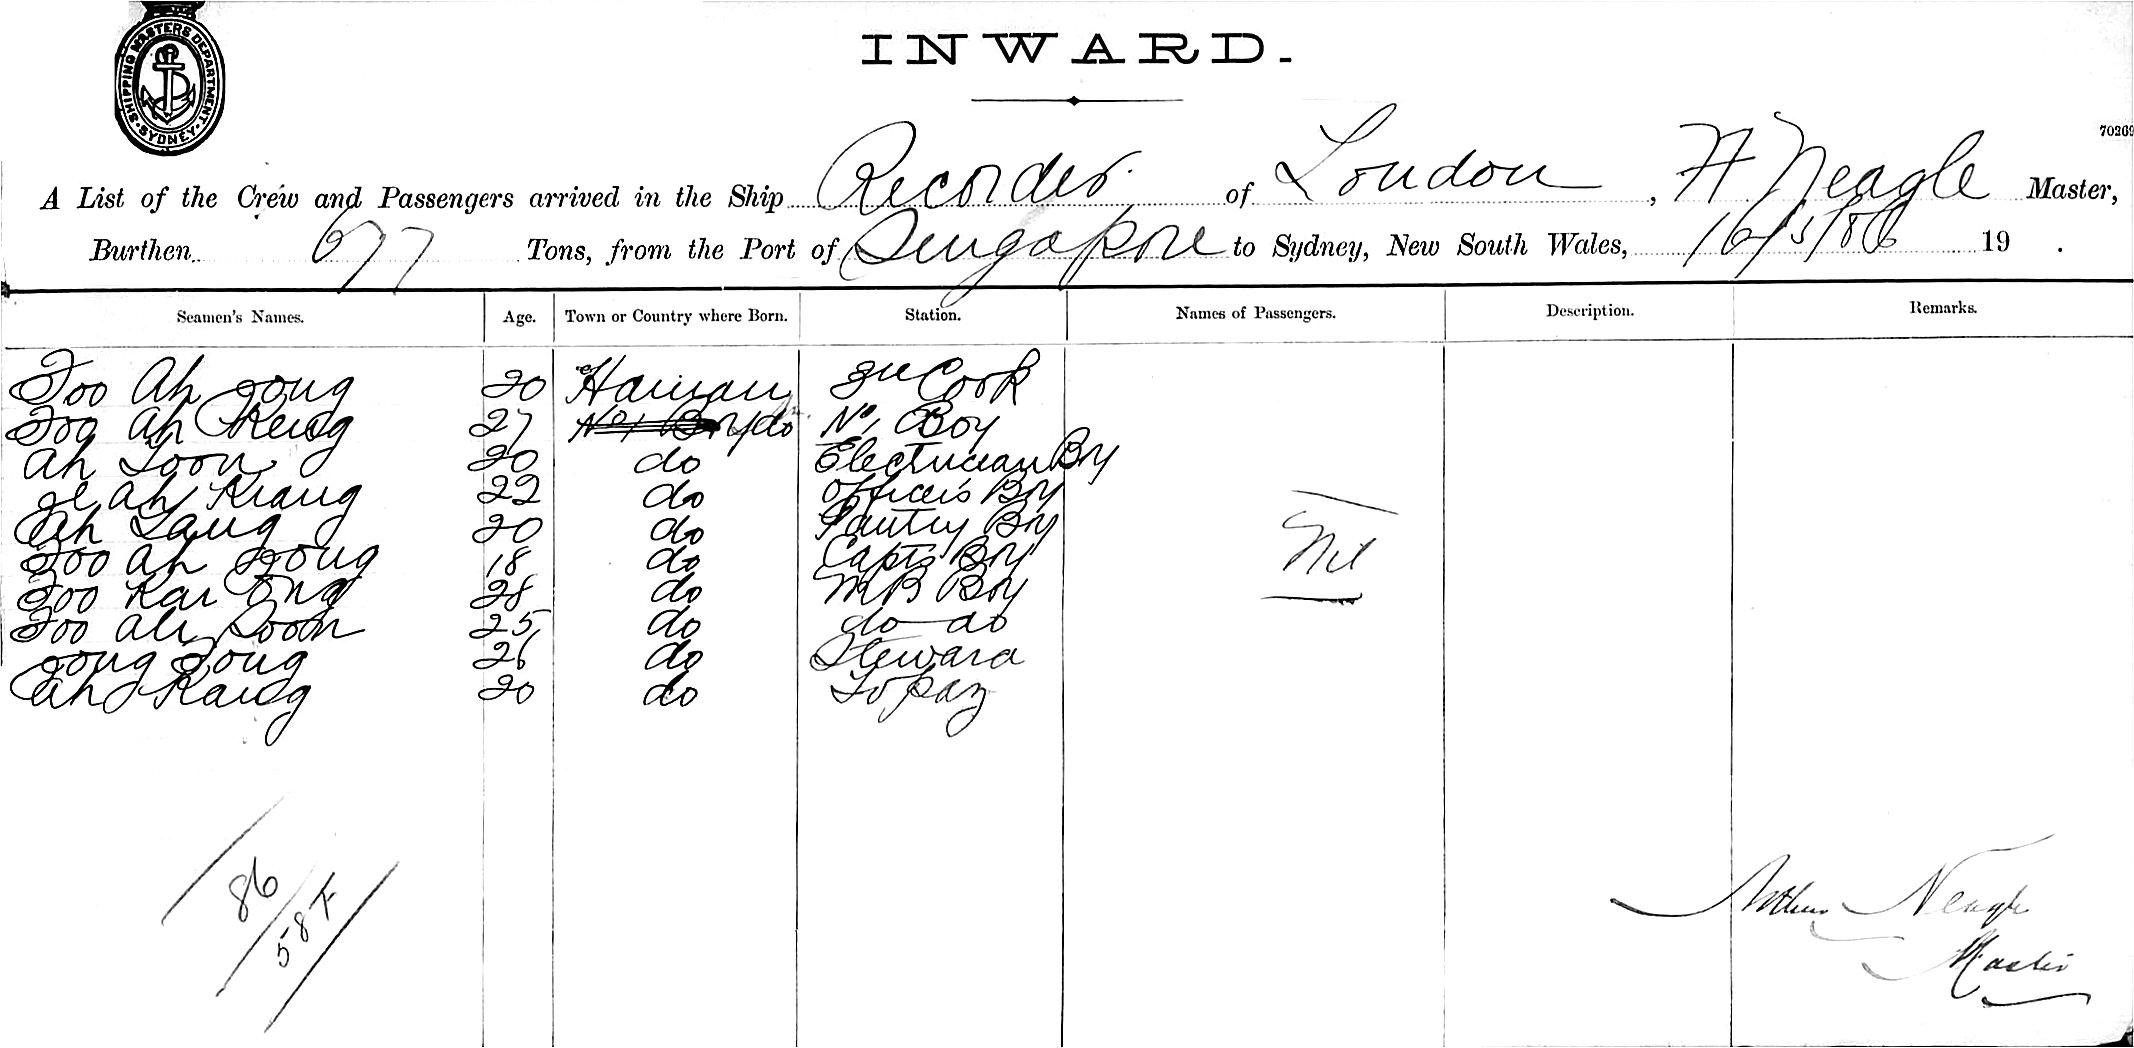 SHIPPING MASTERS DEPARTMENT · SYDNEY ·
INWARD.
70269
A List of the Crew and Passengers arrived in the Ship Recorder of London, A Neagle Master,
Burthen 677 Tons, from the Port of Singapore to Sydney, New South Wales, 16/5/86 19 .
Seamen's Names. Age. Town or Country where Born. Station. Names of Passengers. Description. Remarks.
Foo Ah 20 Hainan Cook
Foo Ah Keng 27 No 1 Boy do No 1 Boy
Ah Loon 20 do Electrician Boy
Ah Kiang 22 do Officers Boy
Ah Lang 20 do Pantry Boy
Foo Ah 18 do Capts Boy
Foo Kai Ong 28 do M B Boy
Foo Ah 25 do do do
26 do Steward
Ah Kang 20 do Topaz
Nil
86
58
Arthur Neagle
Master